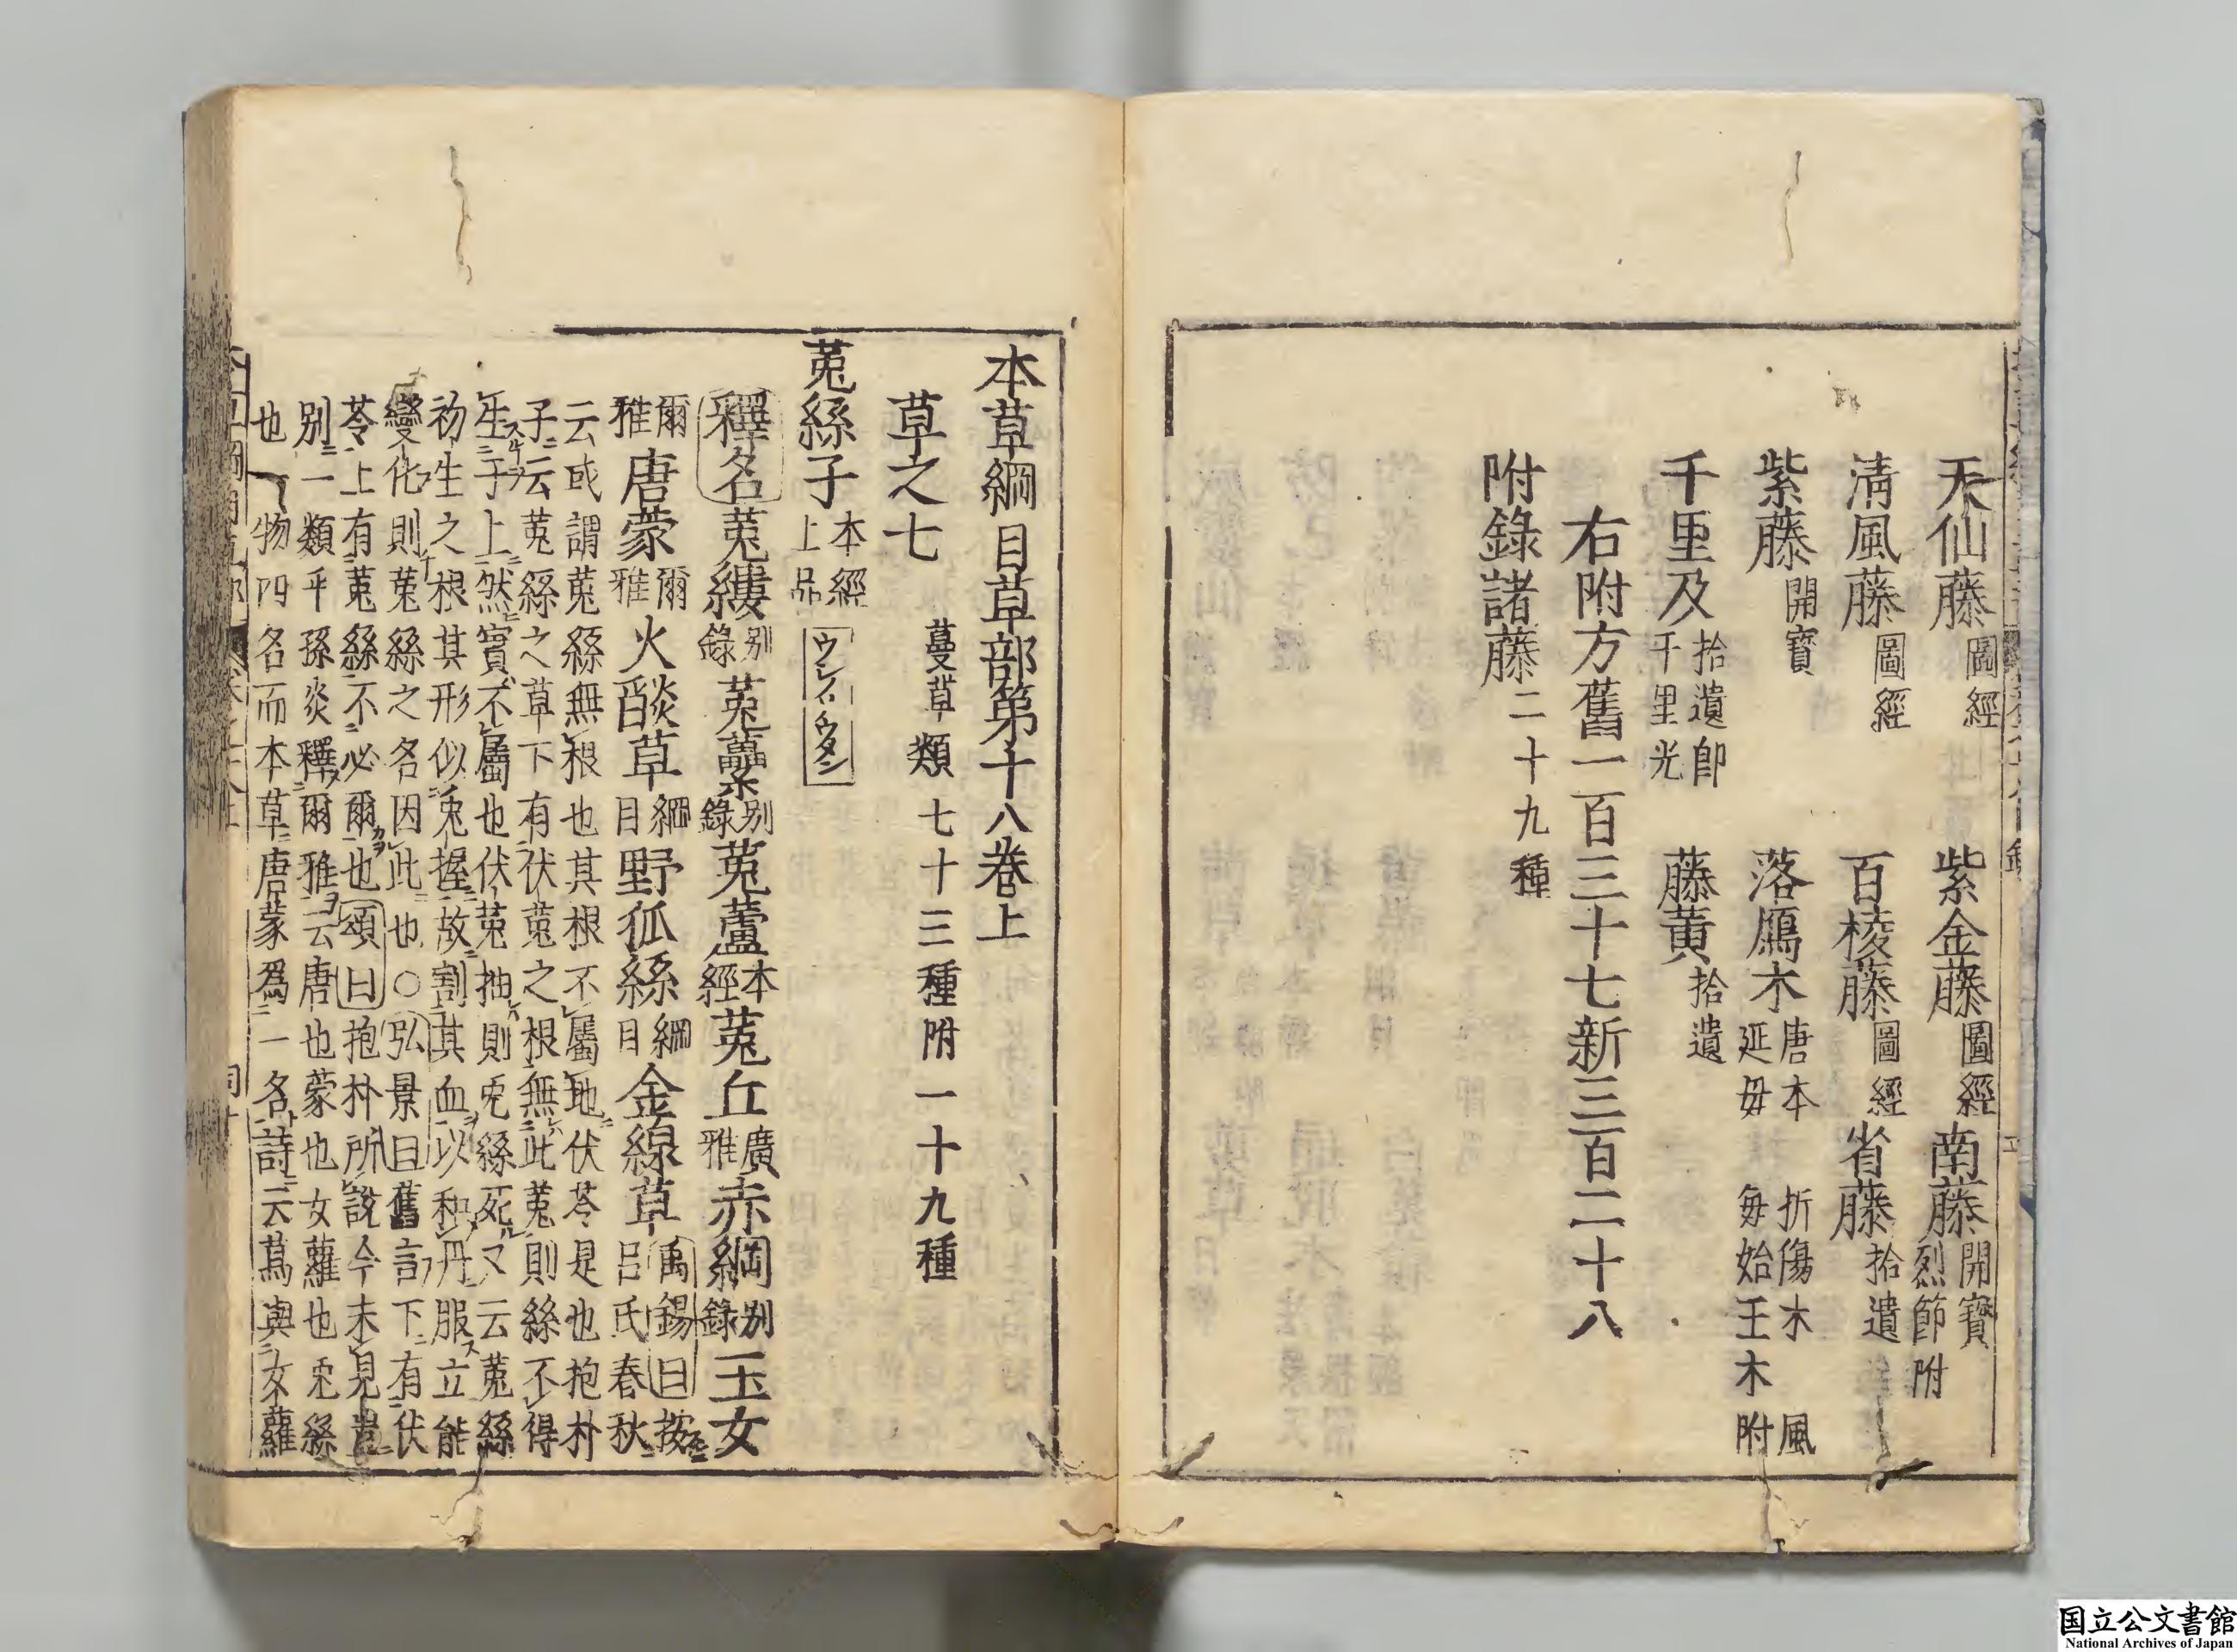 天仙藤圖經　紫金藤圖經　南藤開寶烈節附
清風藤圖經　百棱藤圖經　省藤拾遺
紫藤開寶　落鴈木唐本　折傷木　風延母　每始王木附
千里及拾遺卽千里光　藤黃拾遺
右附方舊一百三十七新三百二十八
附錄諸藤二十九種
本草綱目草部第十八卷上
草之七　蔓草類七十三種附一十九種
菟絲子本經上品
釋名菟縷別錄菟虆別錄菟蘆本經菟丘廣雅赤綱別錄玉女
爾雅唐蒙爾雅火燄草綱目野狐絲綱目金線草禹錫曰按呂氏春秋
云或謂菟絲無根也其根不屬地伏苓是也抱朴
子云菟絲之草下有伏菟之根無此菟則絲不得
生于上然實不屬也伏菟抽則兎絲死又云菟絲
初生之根其形似兎掘故割其血以和丹服立能
變化則菟絲之名因此也○弘景曰舊言下有伏
苓上有菟絲不必爾也頌曰抱朴所說今未見豈
別一類乎孫炎釋爾雅云唐也蒙也女蘿也兎絲
也一物四名而本草唐蒙爲一名詩云蔦與女蘿
国立公文書館
National Archives of Japan